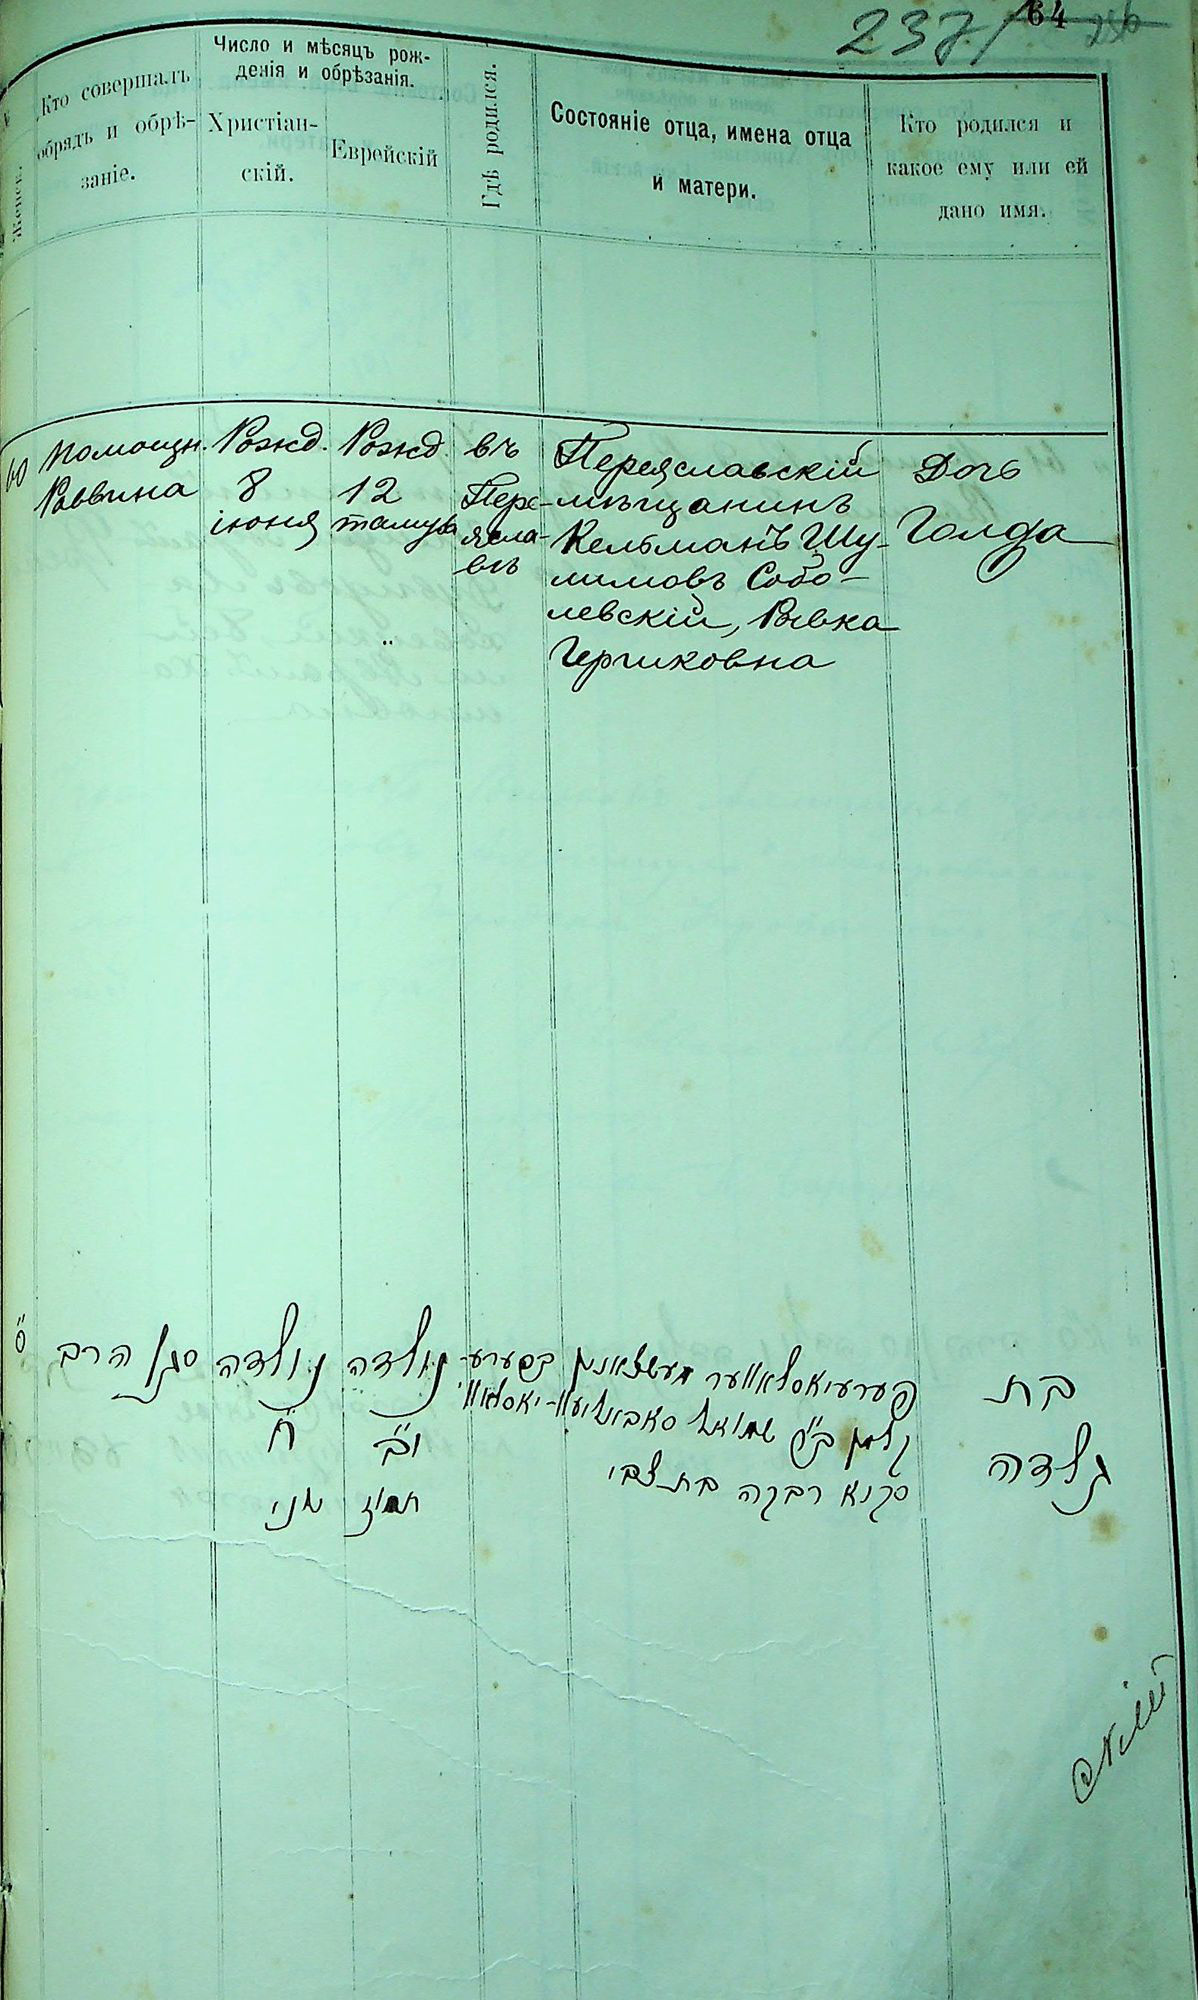 237/
64
Женск.
Кто совершалъ
обрядъ и обрѣ-
заніе.
Число и мѣсяцъ рож-
денія и обрѣзанія.
Христіан-
скій.
Еврейскій
Гдѣ родился.
Состояніе отца, имена отца
и матери.
Кто родился и
какое ему или ей
дано имя.
60
Помощн.
Раввина
Рожд.
8
іюня
Рожд
12
тамуза
въ
Пере-
ясла-
влѣ
Переяславскій
мѣщанинъ
Кельманъ Шу-
лимовъ Собо-
левскій, Ривка
Гершковна
Дочь
Голда
ס"
סגן הרב
נולדה
ח"
יוני
נולדה
י"ב
תמוז
בפערע-
יאסלאוו
פערעיאסלאווער מעשצאנין
קלמן ב"ר
סאבאליעוו-
סקי רבקה בת צבי
בת
גולדה